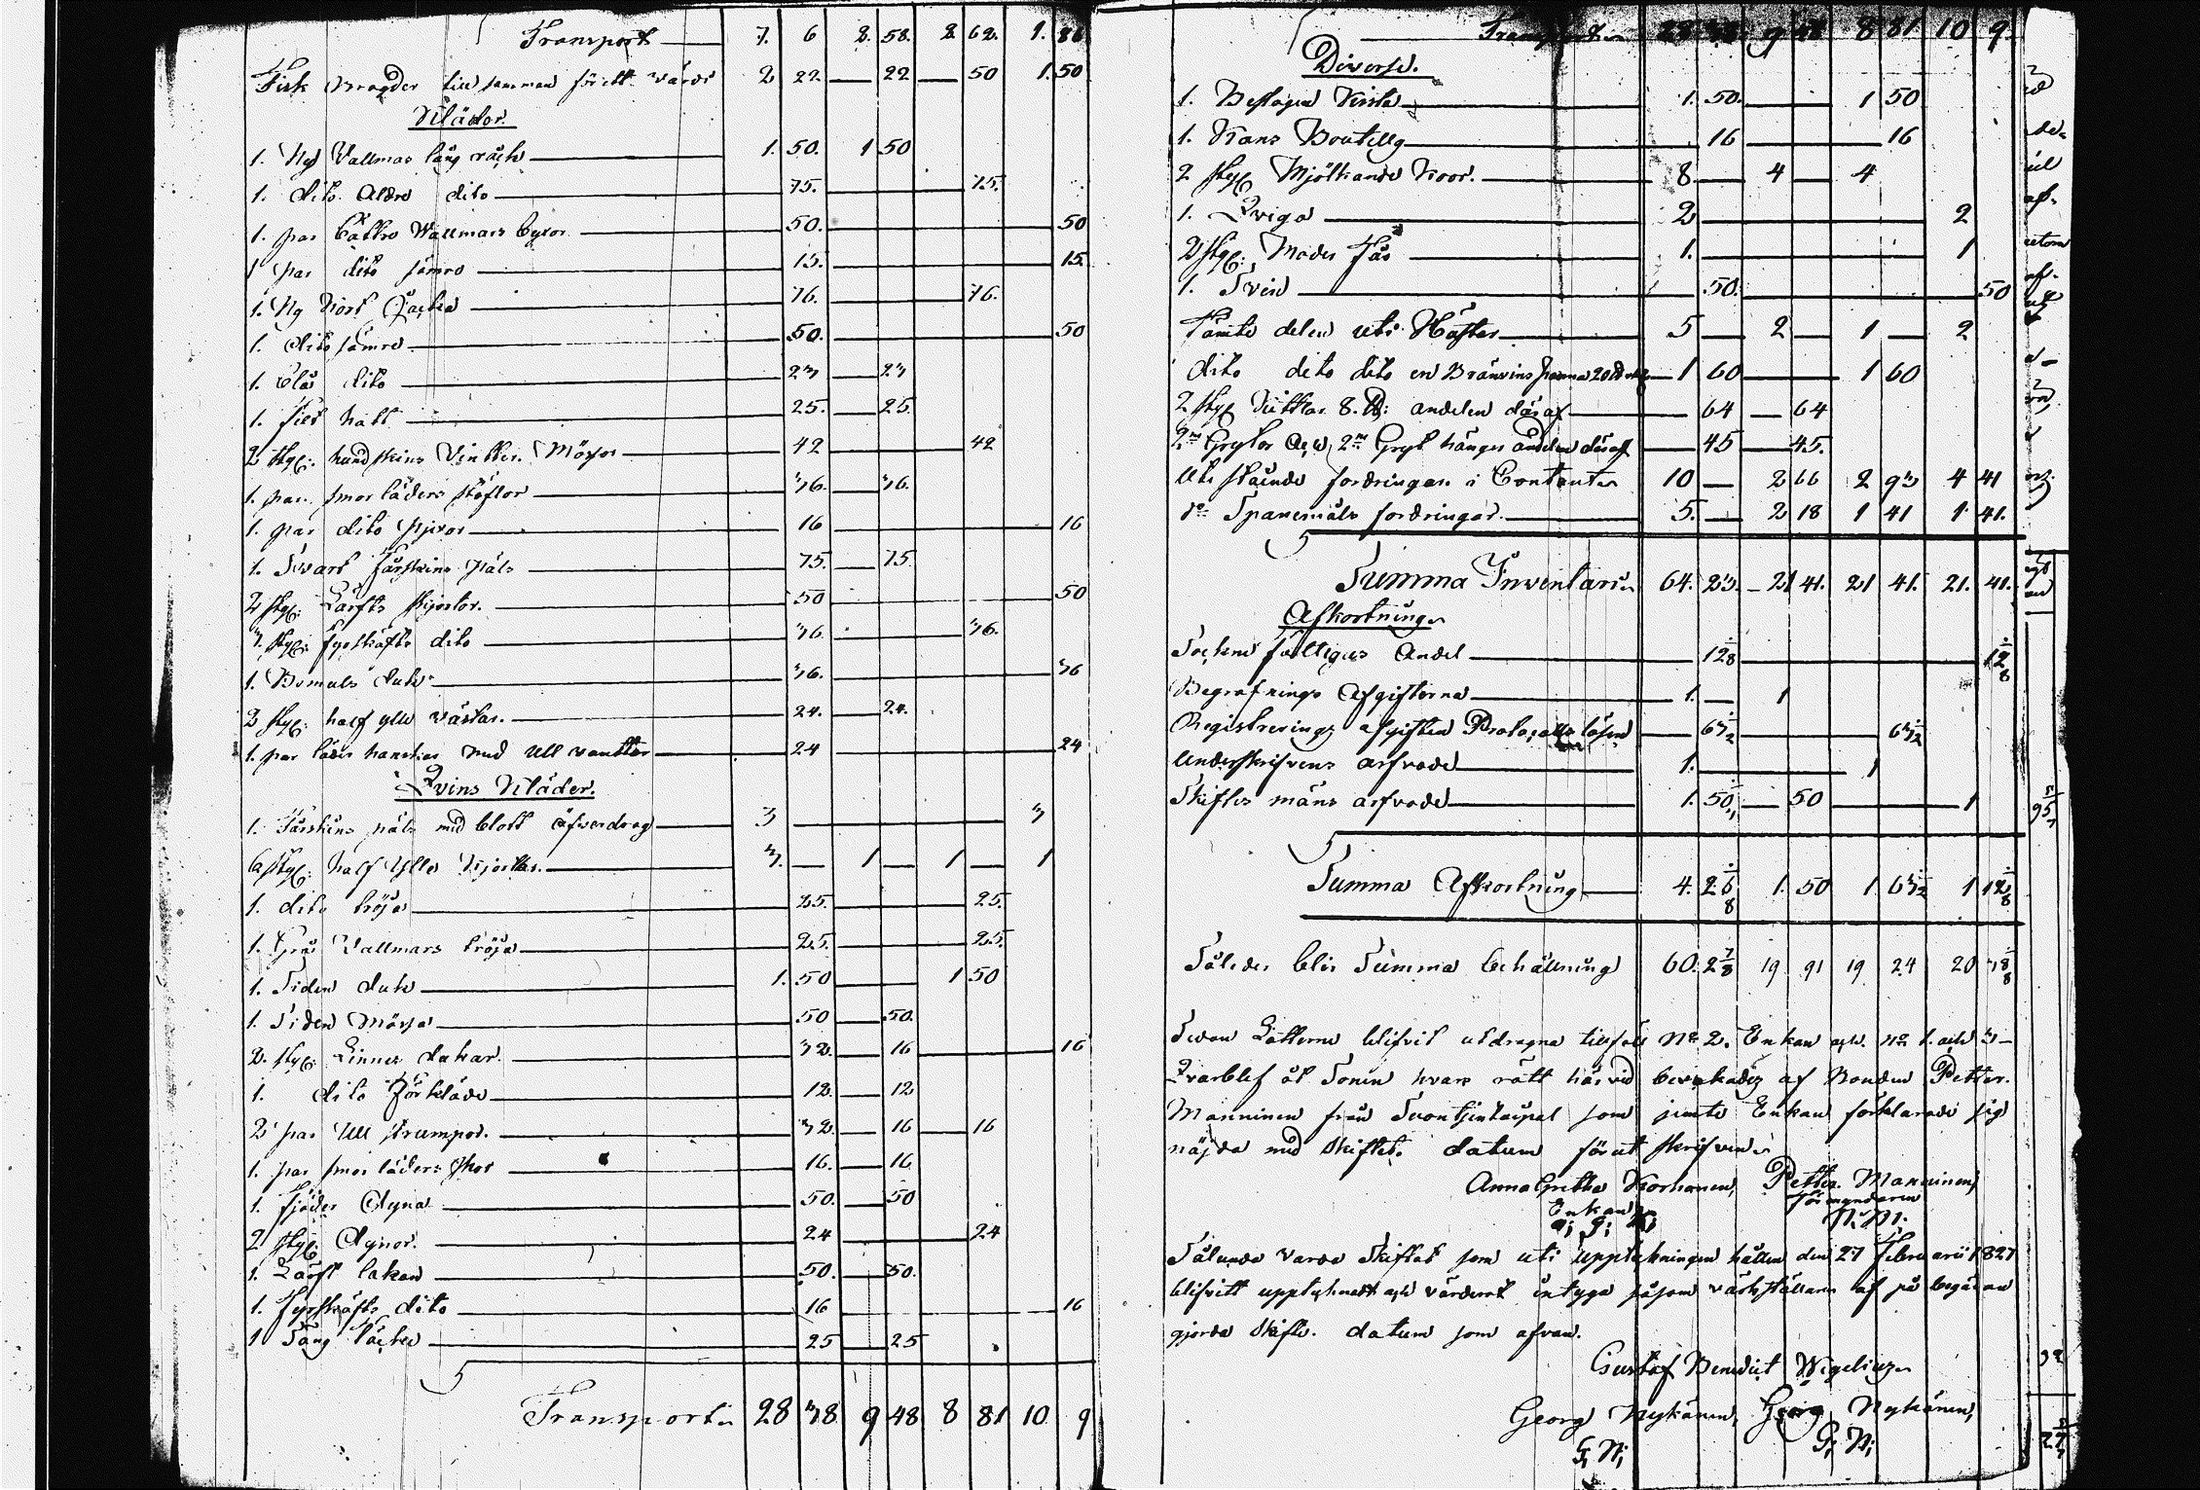 Transport 7. 6 2. 58. 2 62. 1. 86
Fisk bragder till samman för ett värde 2 22 22 50 1. 50
Kläder.
1. Ny Vallmar lång råck 1. 50. 1 50
1. dito äldre dito 75. 75.
1. par bättre Wallmars byxor 50. 50
1 par dito sämre 15. 15.
1. Ny kort Jacka 36. 36.
1. dito sämre 50. 50
1. blå dito 23 23
1. filt hatt 25. 25.
2 styc: hundskins Vintter Mössor 42 42
1. par smorläders stöflor 36. 36.
1. par dito pjexor 16 16
1. Svart fårskins päls 75. 75.
2 styc: Lärfts skjortor. 50 50
3. styc: fyrskäfts dito 36. 36.
1. Bomuls duk 36. 36
2 styc: half ylle västar. 24. 24.
1. par läder hanskar med ull vanttar 24 24
Qvins Kläder.
1. Fårskins päls med blott öfverdrag 3 3
6 styc: half Ylle kjortlar. 3. 1 1 1
1. dito tröja 25. 25.
1. Grå Vallmars tröja 25. 25.
1. Siden duk 1. 50 1 50
1. Siden Mössa 50 50.
2. styc: Linnes dukar. 32. 16 16
1. dito förkläde 12. 12
2 par Ull strumpor. 32. 16 16
1. par smorläders skor 16. 16
1. fjäder dyna 50. 50
2 styc: dynor. 24 24
1. Lärft lakan 50. 50.
1. fyrskäfts dito 16 16
1 Säng täcke 25 25
Transport 28 38 9 48 8 81 10 9
Transport 28 38 9 48 8 81 10 9.
Diverse.
1. Beslagen Kista 1. 50. 1 50
1. Kans Boutellg 16 16
2 styc Mjölkande Koor. 8 4 4
1. Qviga 2 2
2 styc: Moder Får 1. 1
1. Svin 50. 50
Fämte delen uti Hästar 5 2 1 2
dito dito dito en Bränvins panna 1 60 1 60
2 styc 8. andelen däraf 64 64
2ne Grytor och 2ne Gryt hänger andelen däraf 45 45.
Uti stående fordringar i Contanter 10 2 66 2 93 4 41
do Spanemåls fordringar. 5. 2 18 1 41 1. 41.
Summa Inventari 64. 23. 21 41. 21 41. 21. 41.
Afkortning
Sockne fattigas Andel 12 1/8 12 1/8
Begrafnings Afgifterna 1. 1
Registrerings afgiften Protocolls lösen 63 1/2 63 1/2
Underskrifvens arfvode 1. 1
Skiftes mäns arfvode 1. 50 50 1
Summa Afkortning 4. 2 6/8 1. 50 1 63 1/2 1 12 1/8
Således blir Summa behållning 60. 2 7/8 19 91 19 24 20 38
Sedan Lotterne blifvit utdragna tillföll No 2. Enkan och no 1. och 3
Qvarblef åt Sonen hvars rätt härvid bevakades af Bonden Petter
Manninen från som jemte Enkan förklarade sig
nöjda med skiftet. datum förut skrifven
Anna Gretha Korhonen, Petter Manninen,
Enkan förmyndaren
A: G: K: P: M:
Sålunda varda Skiftet som uti upptekningen hållen den 27 februarii 1827
blifvitt uppteknatt och värderat intyga såsom värkställare af på begäran
gjorda skifte. datum som ofvan.
Gustaf Benedict Wigelius
Georg Nykänen, Georg Nykänen,
G: N: G: N: